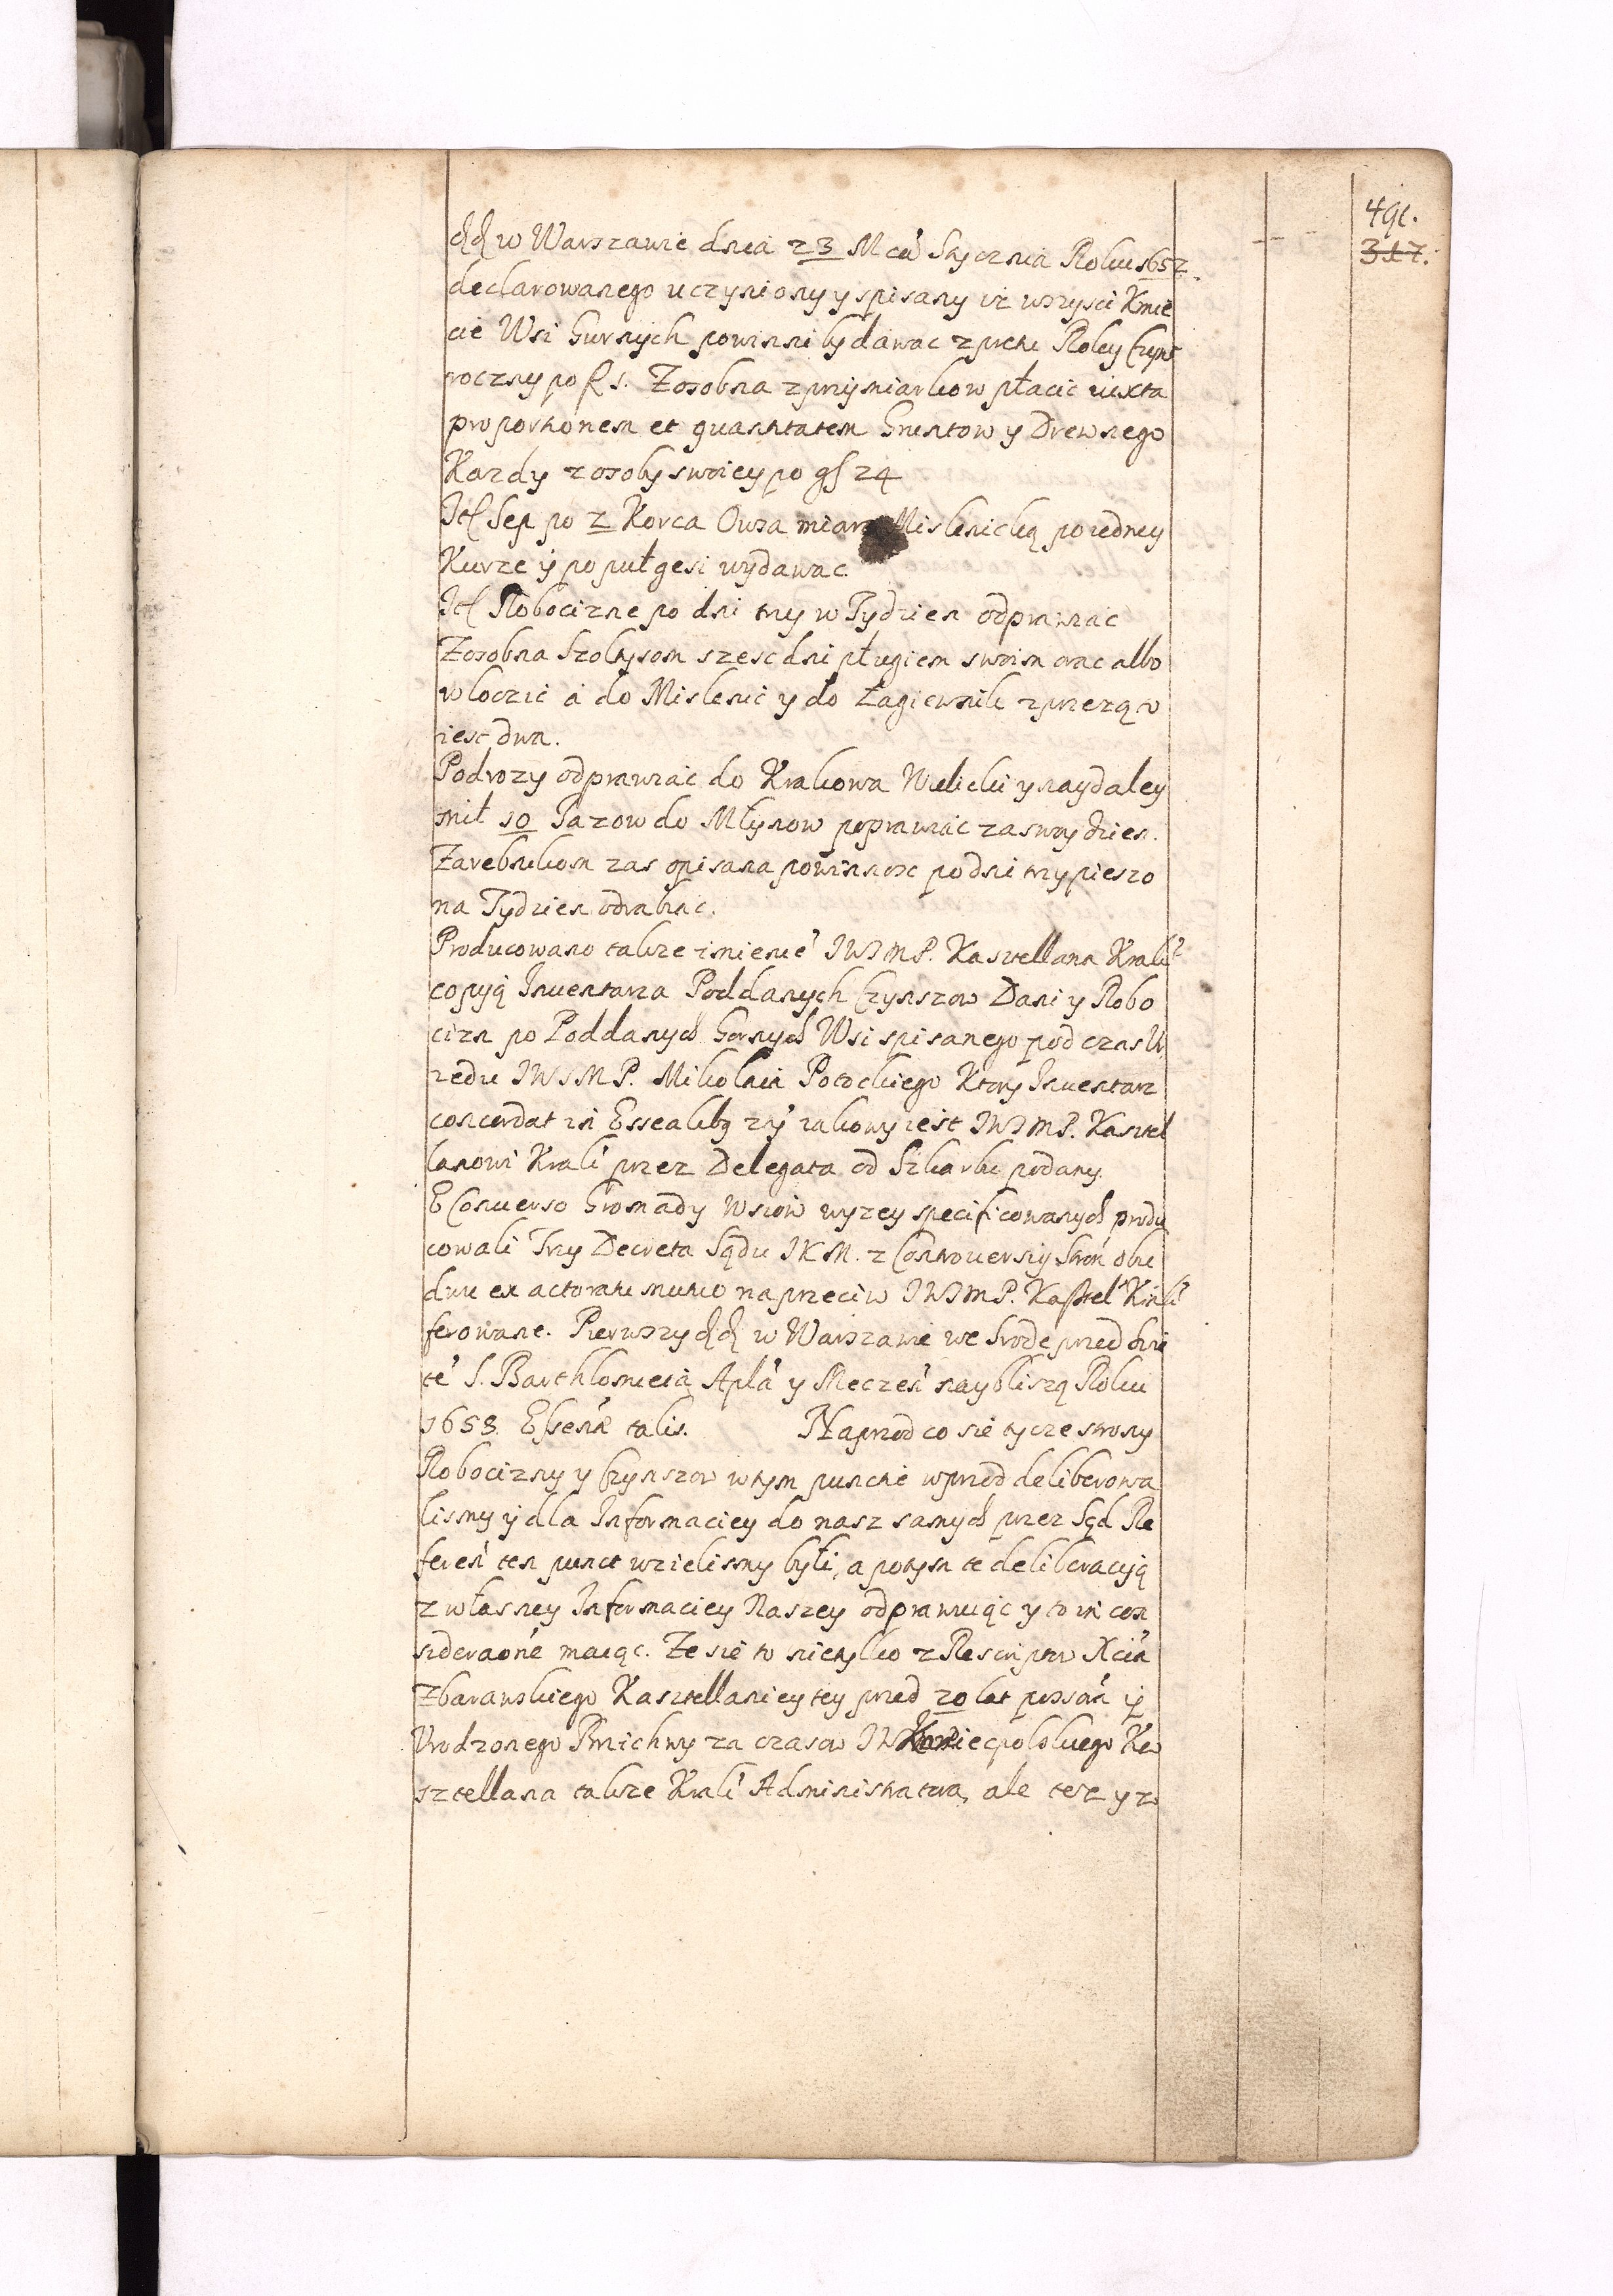 491.
317.
dd w Warszawie dnia 23 Mca Stycznia Roku 1652.
declarowanego uczyniony y spisany iz wszysci Kmie
cie Wsi Gurnych powinni by dawac z pretu Roley Czynsz
roczny po f 1. Zosobna z przymiarkow płacic iuxta
proportionem et quantitatem Gruntow y Drewnego
Kazdy z osoby swoiey po gs 24
Itl Sep po 2 Korca Owsa miara Mislenicką po iedney
Kurze y po puł gesi wydawac.
Itl Robocizne po dni trzy w Tydzien odprawiac
Zosobna Szoltysom szesc dni pługiem swoim orac albo
wloczic a do Mislenic y do Łagiewnik z przezą to
iest dwa.
Podrozy odprawiac do Krakowa Wielicki y naydaley
mil 10 Jazow do Młynow poprawiac za swoy dzien.
Zarebnikom zas opisana powinnosc po dni trzy pieszo
na Tydzien odrabiac.
Producowano takze imieniē JWJMP. Kasztellana Krakī
copyą Inventarza Poddanych Czynszow Dani y Robo
cizn po Poddanych Gornych Wsi spisanego pod czas U
rzedu JWJMP. Mikolaia Potockiego Ktory Inventarz
concordat in Essealibg zy iakowy iest JWJMP. Kasztel
lanowi Krakī przez Delegata od Szkarbu podany.
E Conuerso Gromady Wsiow wyzey specificowanych produ
cowali Trzy Decreta Sądu JKM. z Controuersiy Stron obu
dwu ex actoratu mutuo naprzeciw JWJMP. Kasztel Krakī
ferowane. Pierwszy dd w Warszawie we Srode przed Swie
tē S. Barthlomieia Apła y Meczen naybliszą Roku
1658. Essentē talis. Naprzod co sie tycze strony
Robocizny y Czynszow w tym punctie wprzod deliberowa
lismy y dla Informaciey do nasz samych przez Sąd Re
feren ten punct wzielismy byłi, a potym te deliberacyą
z własney Informaciey Naszey odprawuiąc y to in con
sideraone maiąc. Ze sie to nietylko z Rescriptow Xcia
Zbarawskiego Kasztellaniey tey przed 20 lat possan y
Urodzonego Pmichwy za czasow JW Koniecpolskiego Ka
sztellana takze Krakī Administratora, ale tesz y z